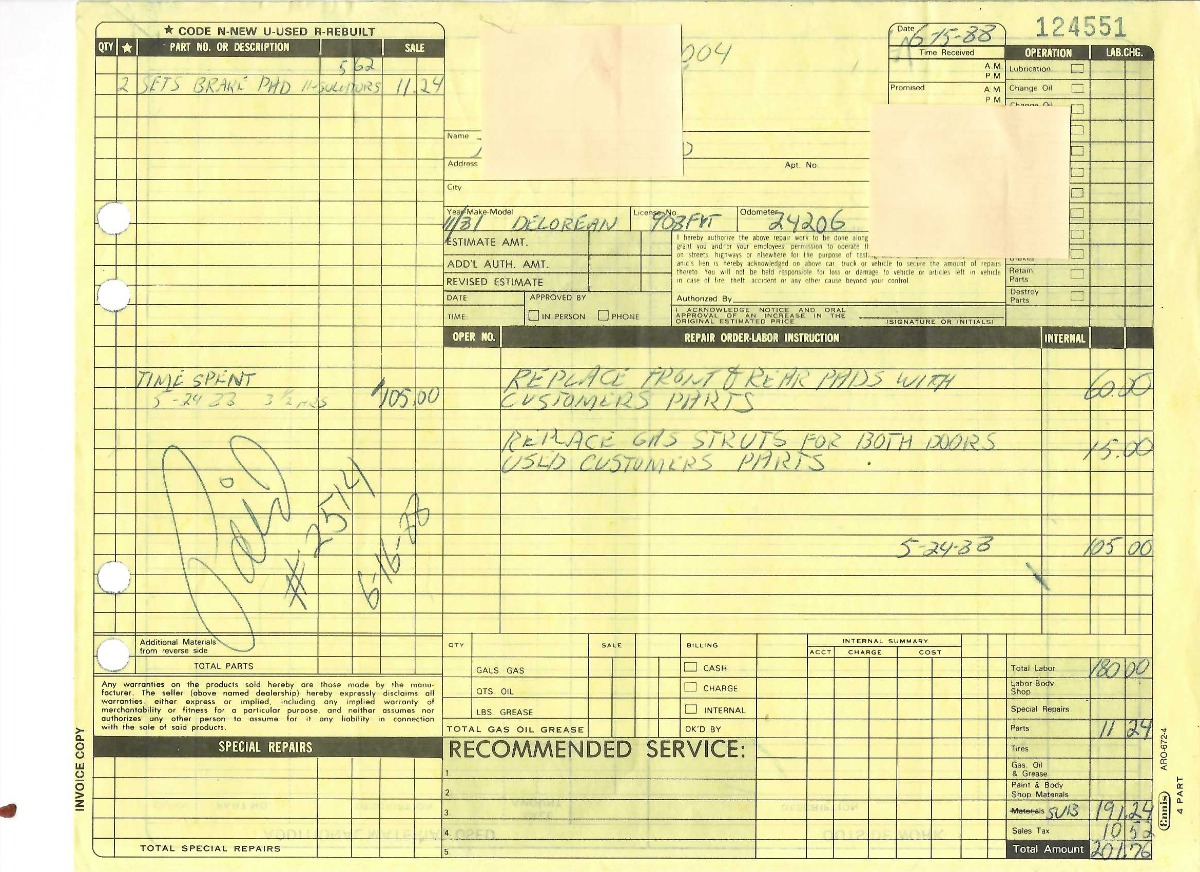 ★ CODE N-NEW U-USED R-REBUILT
QTY ★ PART NO. OR DESCRIPTION SALE
562
2 SETS BRAKE PAD INSULATORS 11.24
TIME SPENT
5-24-88 3 1/2 HRS $105.00
Paid
#2514
6-16-88
Additional Materials
from reverse side
TOTAL PARTS
Any warranties on the products sold hereby are those made by the manu-
facturer. The seller (above named dealership) hereby expressly disclaims all
warranties, either express or implied, including any implied warranty of
merchantability or fitness for a particular purpose, and neither assumes nor
authorizes any other person to assume for it any liability in connection
with the sale of said products.
SPECIAL REPAIRS
TOTAL SPECIAL REPAIRS
INVOICE COPY
004
Date 6-15-88
124551
Time Received
A.M.
P.M.
Promised A.M.
P.M.
OPERATION LAB.CHG.
Lubrication
Change Oil
Change Oil
Name
Address Apt. No.
City
Year-Make-Model 11/81 DELOREAN
License No. 903FVT
Odometer 24206
ESTIMATE AMT.
ADD'L AUTH. AMT.
REVISED ESTIMATE
DATE APPROVED BY
TIME: IN PERSON PHONE
I hereby authorize the above repair work to be done along
grant you and/or your employees permission to operate th
on streets, highways or elsewhere for the purpose of testing
anic's lien is hereby acknowledged on above car, truck or vehicle to secure the amount of repairs
thereto. You will not be held responsible for loss or damage to vehicle or articles left in vehicle
in case of fire, theft, accident or any other cause beyond your control.
Authorized By
I ACKNOWLEDGE NOTICE AND ORAL
APPROVAL OF AN INCREASE IN THE
ORIGINAL ESTIMATED PRICE
(SIGNATURE OR INITIALS)
Retain
Parts
Destroy
Parts
OPER NO. REPAIR ORDER-LABOR INSTRUCTION INTERNAL
REPLACE FRONT & REAR PADS WITH 60.00
CUSTOMERS PARTS
REPLACE GAS STRUTS FOR BOTH DOORS 15.00
USED CUSTOMERS PARTS
5-24-88 105 00
QTY SALE BILLING
GALS. GAS CASH
QTS. OIL CHARGE
LBS. GREASE INTERNAL
TOTAL GAS OIL GREASE OK'D BY
RECOMMENDED SERVICE:
1
2
3.
4.
5
INTERNAL SUMMARY
ACCT CHARGE COST
Total Labor 180 00
Labor Body
Shop
Special Repairs
Parts 11 24
Tires
Gas, Oil
& Grease
Paint & Body
Shop Materials
Materials SUB 191.24
Sales Tax 10 52
Total Amount 201.76
Ennis
ARO-672-4
4 PART